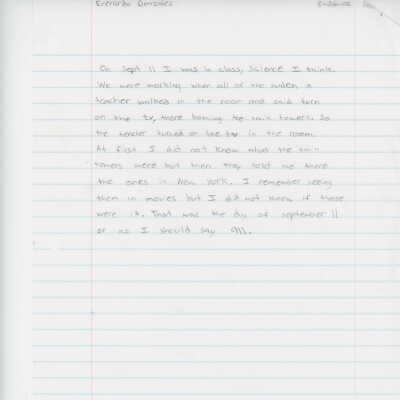 On Sept 11 I was in class, Science I think.
We were working when all of the suden a
teacher walked in the room and said turn
on the tv, there boming the twin towers. So
the teacher turned on the tv in the room.
At first I did not know what the twin
towers were but then they told me there
the ones in New York. I remember seeing
them in movies but I did not know if those
were it. That was the day of september 11
or as I should say 911.